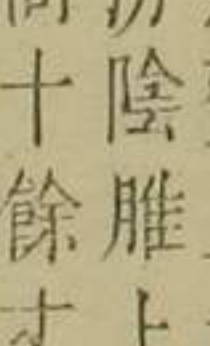 汾陰脽上
十餘丈